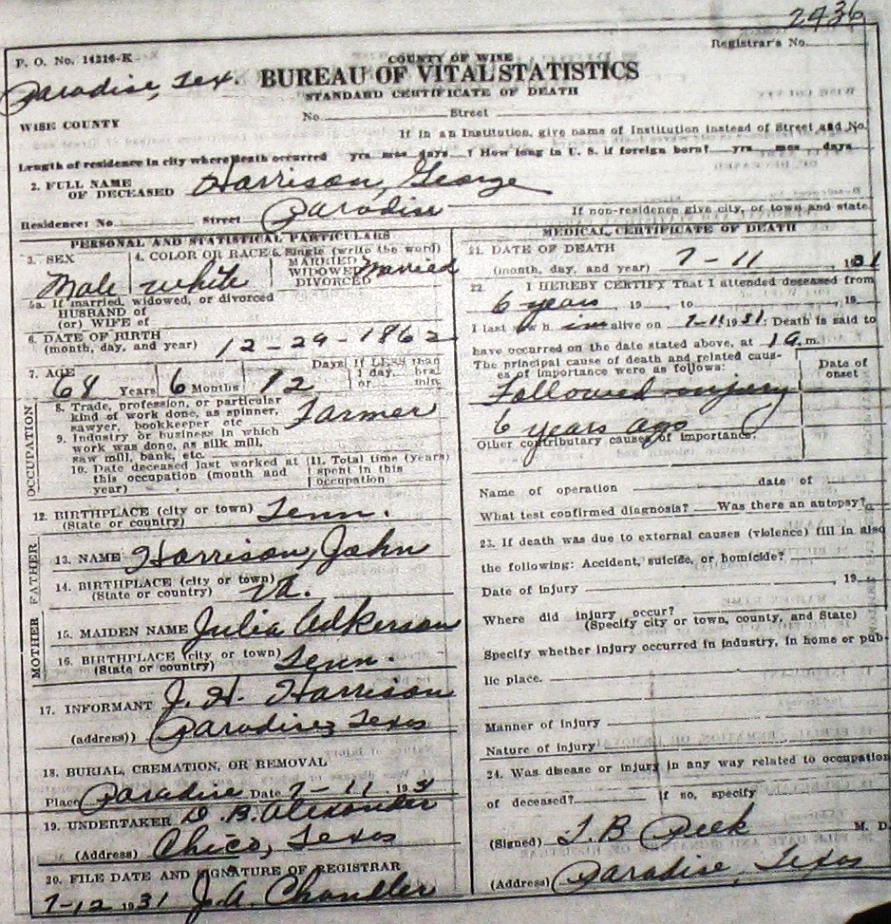 2436
Registrar's No.
P. O. No. 14216-K
COUNTY OF WISE
Paradise, Tex.
BUREAU OF VITAL STATISTICS
STANDARD CERTIFICATE OF DEATH
WISE COUNTY
No. Street
If in an Institution, give name of Institution instead of Street and No.
Length of residence in city where death occurred yrs mos days ? How long in U. S. if foreign born? yrs mos days
2. FULL NAME OF DECEASED Harrison, George
Residence: No Street Paradise If non-residence give city, or town and state
PERSONAL AND STATISTICAL PARTICULARS
3. SEX Male
4. COLOR OR RACE white
5. Single (write the word)
MARRIED
WIDOWED
DIVORCED
Married
5a. If married, widowed, or divorced
HUSBAND of
(or) WIFE of
6. DATE OF BIRTH
(month, day, and year) 12-29-1862
7. AGE 68 Years 6 Months 12 Days If LESS than 1 day, hrs. or min.
OCCUPATION
8. Trade, profession, or particular
kind of work done, as spinner,
sawyer, bookkeeper etc Farmer
9. Industry or business in which
work was done, as silk mill,
saw mill, bank, etc.
10. Date deceased last worked at
this occupation (month and
year)
11. Total time (years)
spent in this
occupation
12. BIRTHPLACE (city or town) Tenn.
(State or country)
FATHER
13. NAME Harrison, John
14. BIRTHPLACE (city or town) Va.
(State or country)
MOTHER
15. MAIDEN NAME Julia Adkerson
16. BIRTHPLACE (city or town) Tenn.
(State or country)
17. INFORMANT J. H. Harrison
(address)) Paradise, Texas
18. BURIAL, CREMATION, OR REMOVAL
Place Paradise Date 7-11 . 193
19. UNDERTAKER D. B. Alexander
(Address) Chico, Texas
20. FILE DATE AND SIGNATURE OF REGISTRAR
7-12 1931 J. A. Chandler
MEDICAL CERTIFICATE OF DEATH
21. DATE OF DEATH
(month, day, and year) 7-11 1931
22. I HEREBY CERTIFY That I attended deceased from
6 years 19 , to , 19
I last saw h im alive on 7-11 1931: Death is said to
have occurred on the date stated above, at m.
The principal cause of death and related caus-
es of importance were as follows:
Date of
onset
Followed injury
6 years ago
Other contributary causes of importance:
Name of operation date of
What test confirmed diagnosis? Was there an autopsy?
23. If death was due to external causes (violence) fill in also
the following: Accident, suicide, or homicide?
Date of injury , 19
Where did injury occur?
(Specify city or town, county, and State)
Specify whether injury occurred in industry, in home or pub-
lic place.
Manner of injury
Nature of injury
24. Was disease or injury in any way related to occupation
of deceased? if so, specify
(Signed) T. B Peek M. D.
(Address) Paradise, Texas